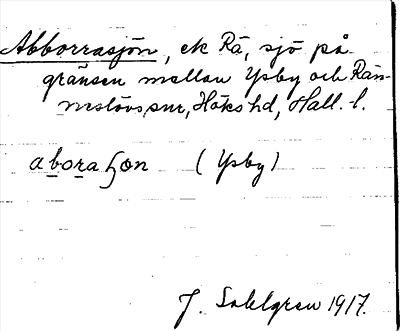 Abborrasjön, ek Rå, sjö på
gränsen mellan Ysby och Rän-
neslövs snr, Höks hd, Hall. l.
aboraɧon (Ysby)
J. Sahlgren 1917.